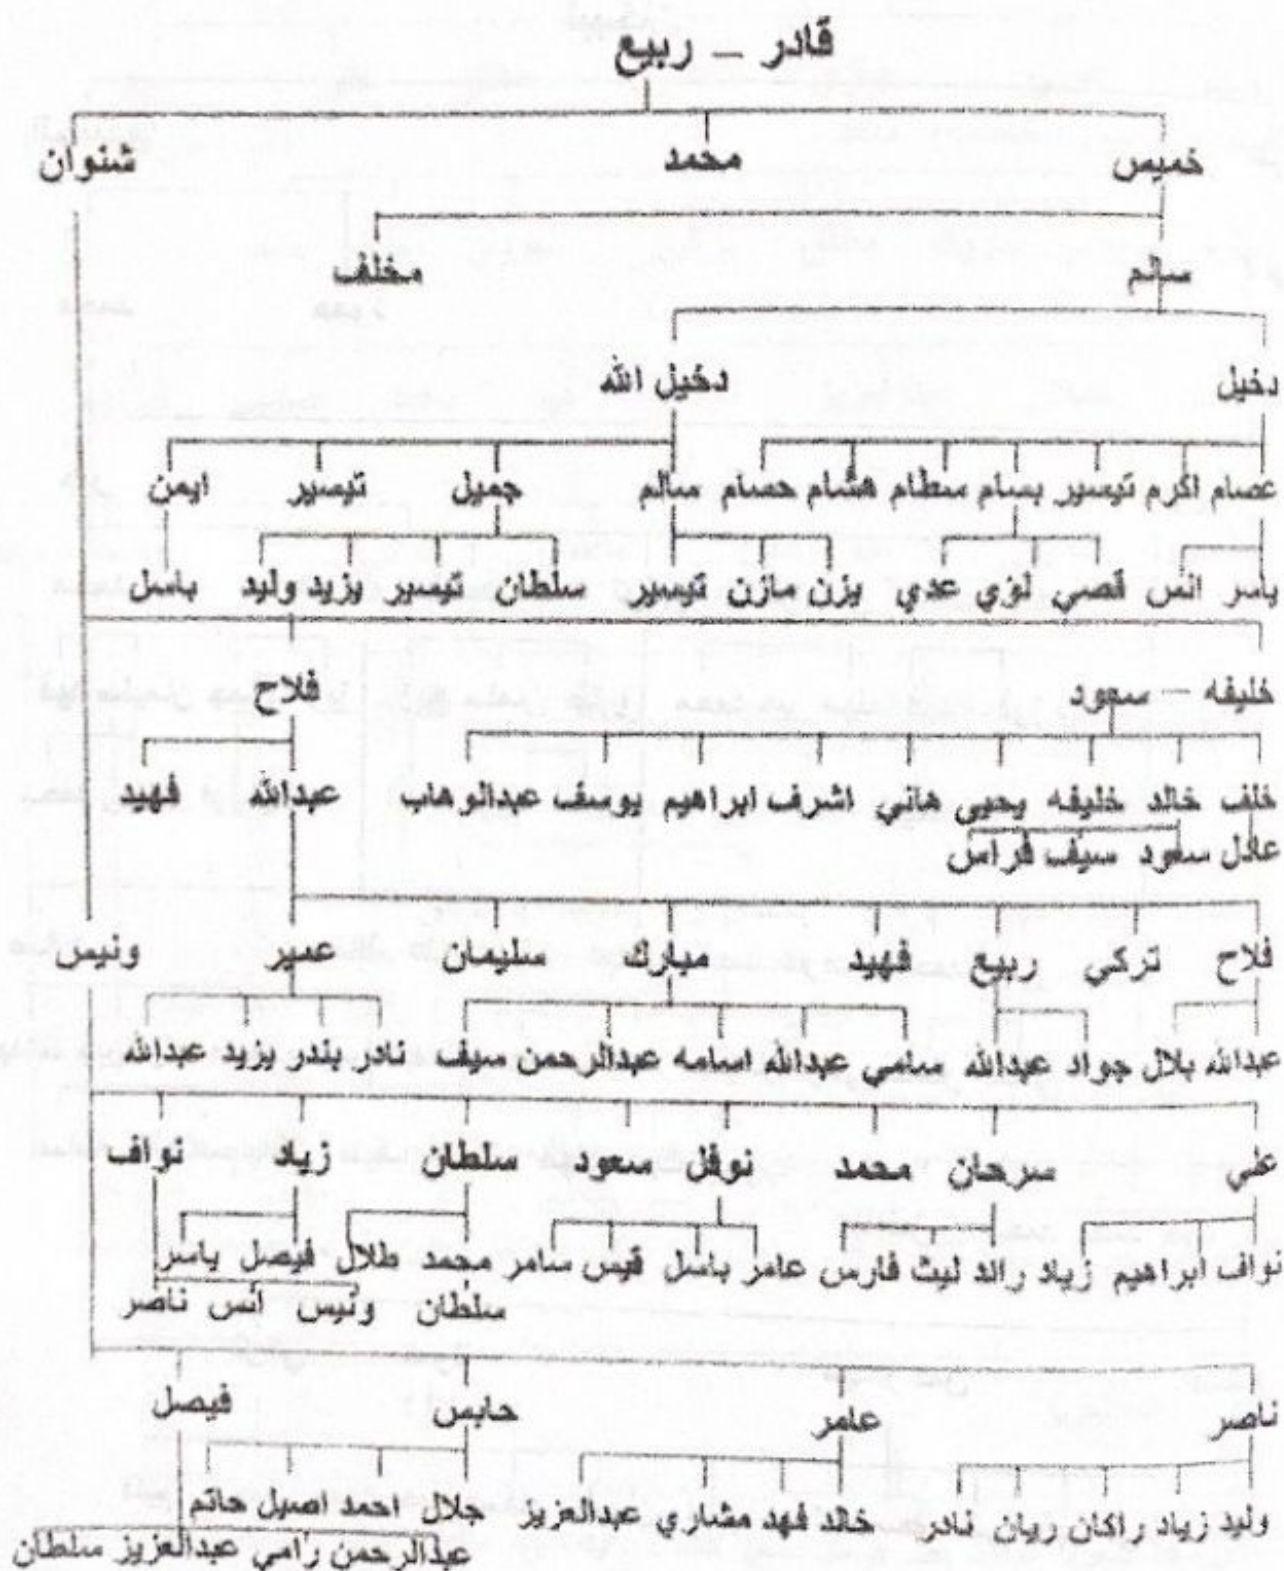 قادر – ربيع
خميس محمد شنوان
سالم مخلف
دخيل دخيل الله
عصام اكرم تيسير بسام سطام هشام حصام سالم جميل تيسير ايمن
ياسر انس قصي لؤي عدي يزن مازن تيسير سلطان تيسير يزيد وليد باسل
خليفه – سعود فلاح
خلف خالد خليفه يحيى هاني اشرف ابراهيم يوسف عبدالوهاب عبدالله فهيد
عادل سعود سيف فراس
فلاح تركي ربيع فهيد مبارك سليمان عمير ونيس
عبدالله بلال جواد عبدالله سامي عبدالله اسامه عبدالرحمن سيف نادر بندر يزيد عبدالله
علي سرحان محمد نوفل سعود سلطان زياد نواف
نواف ابراهيم زياد رائد ليث فارس عامر باسل قيس سامر محمد طلال فيصل ياسر
سلطان ونيس انس ناصر
ناصر عامر حابس فيصل
وليد زياد راكان ريان نادر خالد فهد مشاري عبدالعزيز جلال احمد اصيل حاتم
عبدالرحمن رامي عبدالعزيز سلطان